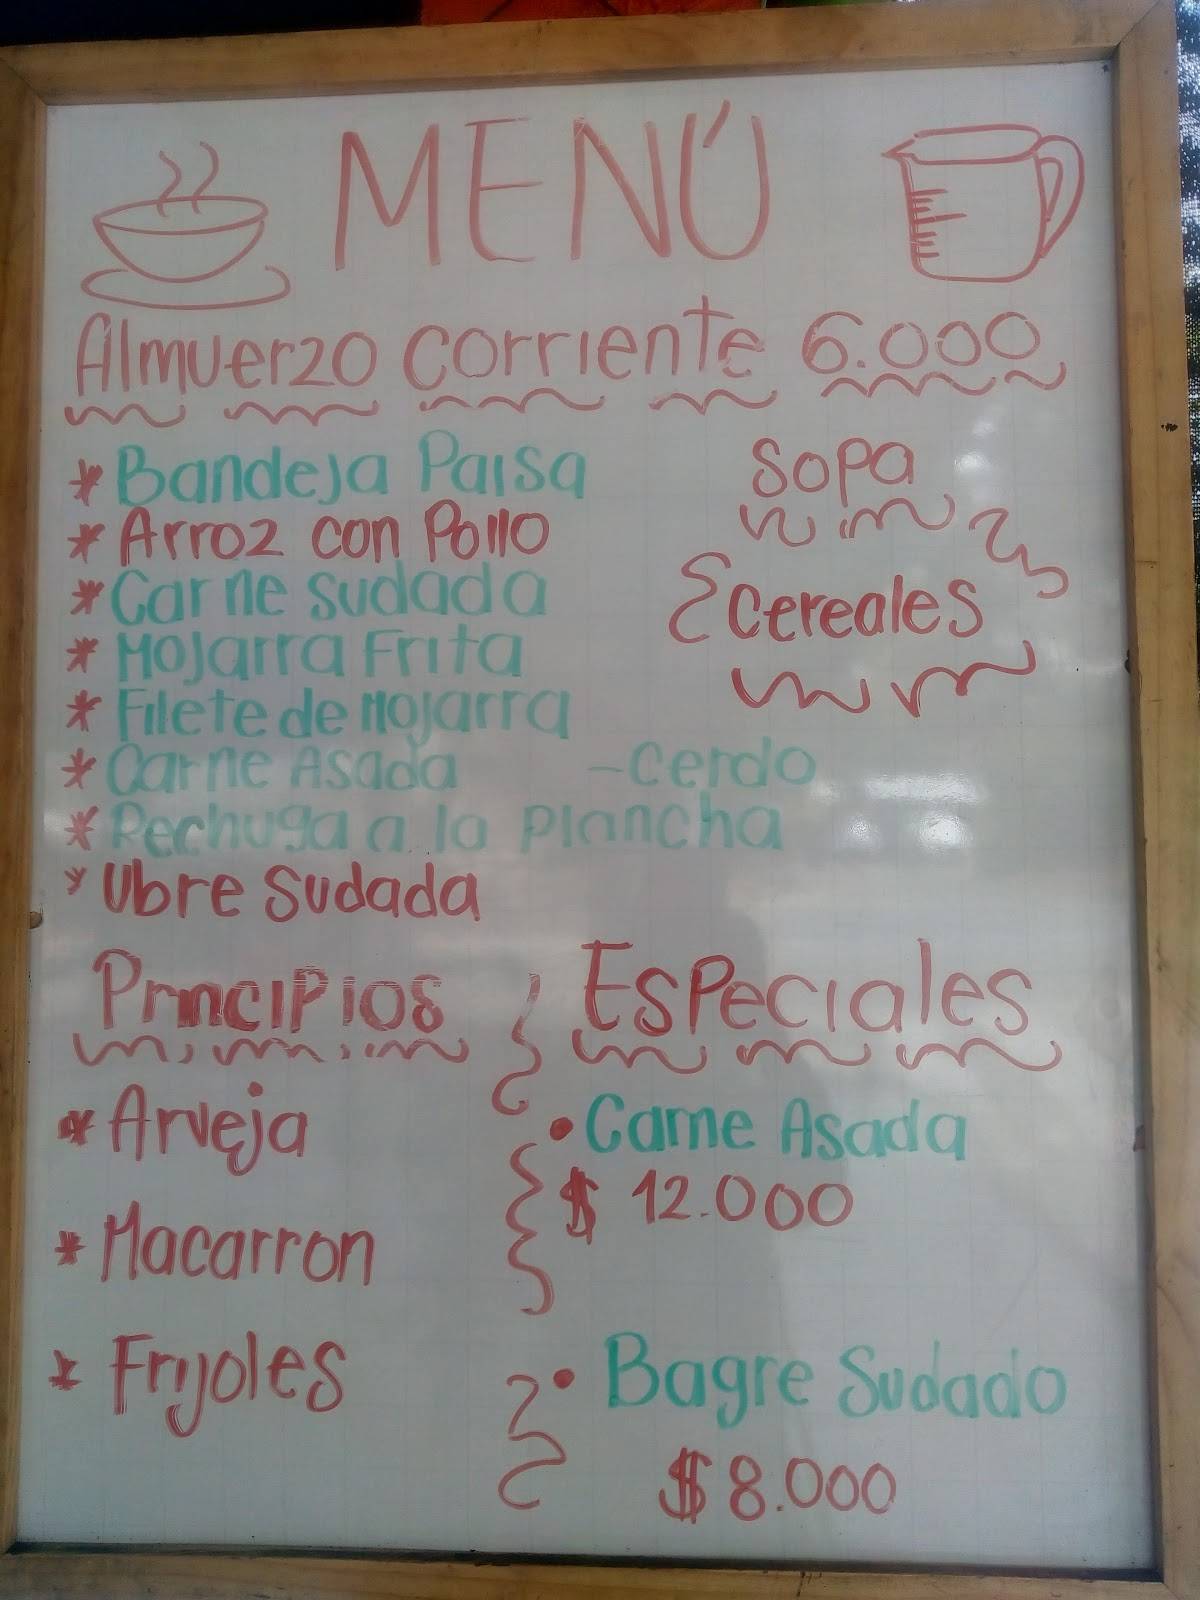 MENÚ
Almuerzo corriente 6.000
* Bandeja Paisa
* Arroz con Pollo
* Carne sudada
* Mojarra Frita
* Filete de Mojarra
* Carne Asada - Cerdo
* Pechuga a la Plancha
* Ubre Sudada
Sopa
Cereales
Principios
* Arveja
* Macarron
* Frijoles
Especiales
• Carne Asada
$ 12.000
• Bagre Sudado
$ 8.000